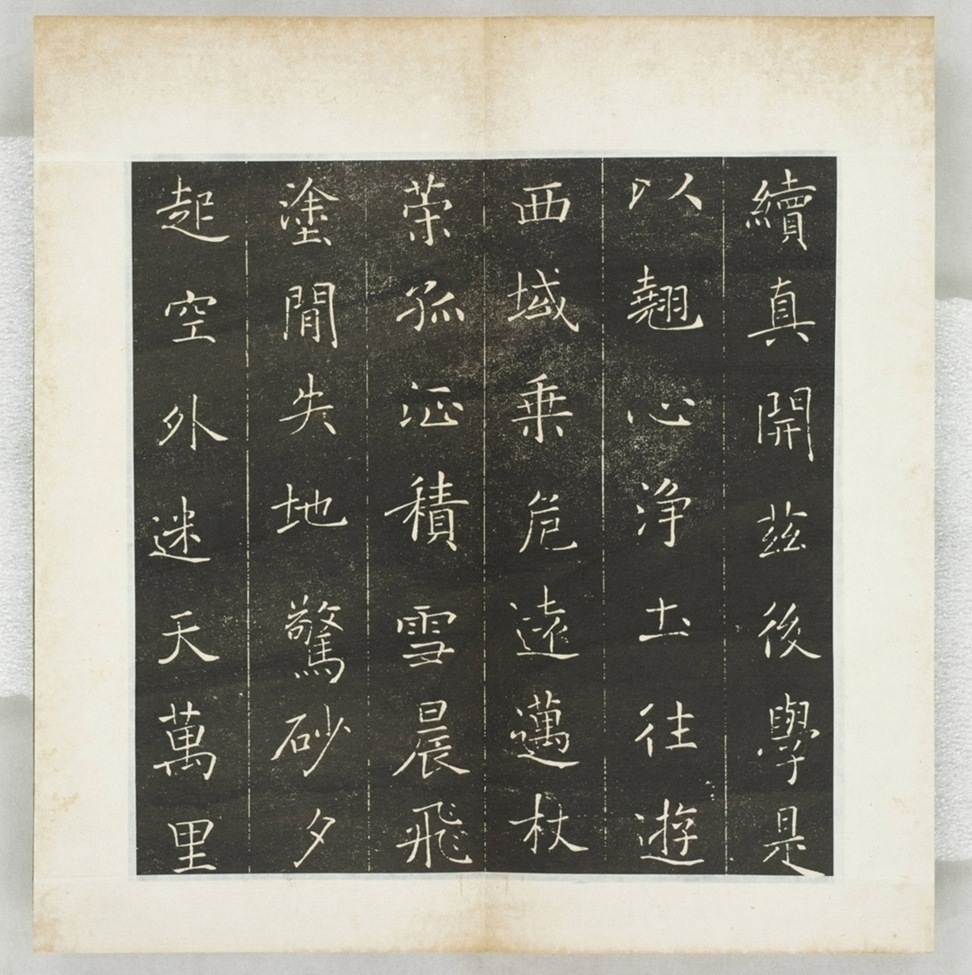 續真開茲後學是
以翹心淨土往遊
西域乗危遠邁杖
榮孤征積雪晨飛
塗閒失地驚砂夕
起空外迷天萬里